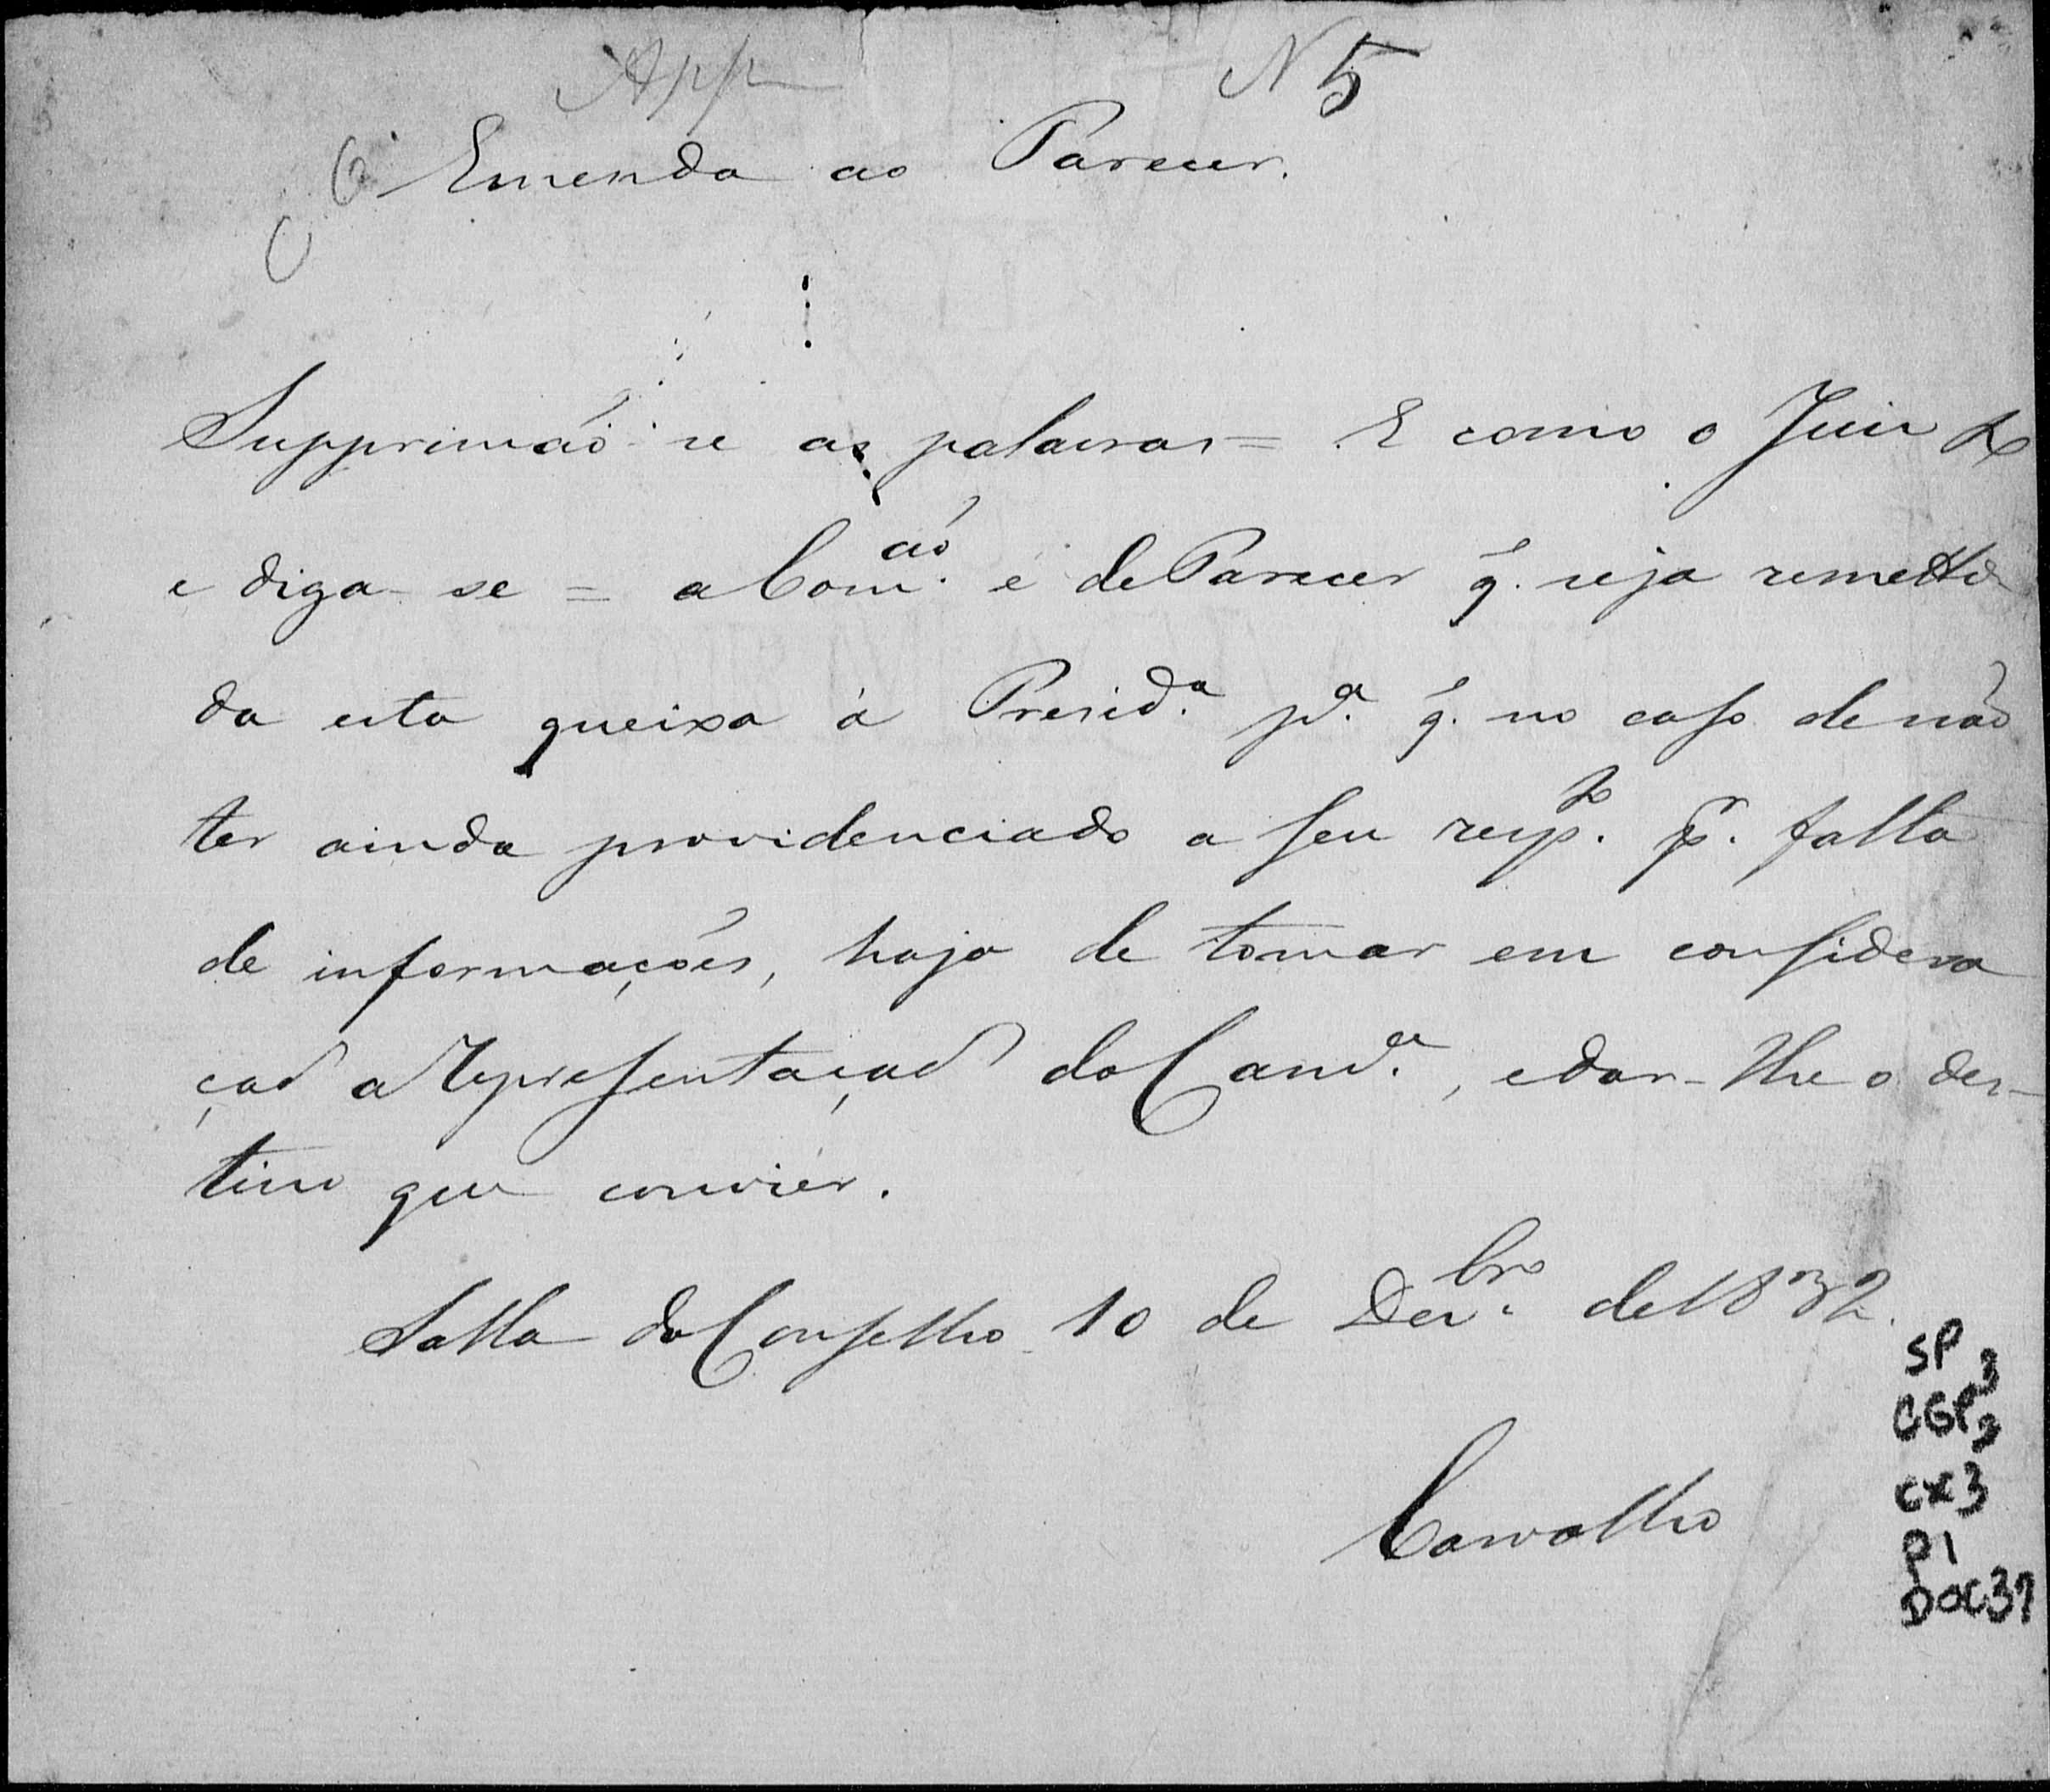 App N 5
Emenda ao Parecer.
Supprimaõ-se as palavras = E como o Juiz &
e diga-se = a Com.ão é de Parecer q̃. seja remetti
da esta queixa á Presid.a p.a q̃. no caso de não
ter ainda providenciado a seu resp.to p.r falta
de informações, haja de tomar em considera
ção a Representação da Cam.a, e dar-lhe o des-
tino que convier.
Salla do Conselho 10 de Dez.bro de 1832.
Carvalho
SP
CGP3
cx3
P1
DOC37